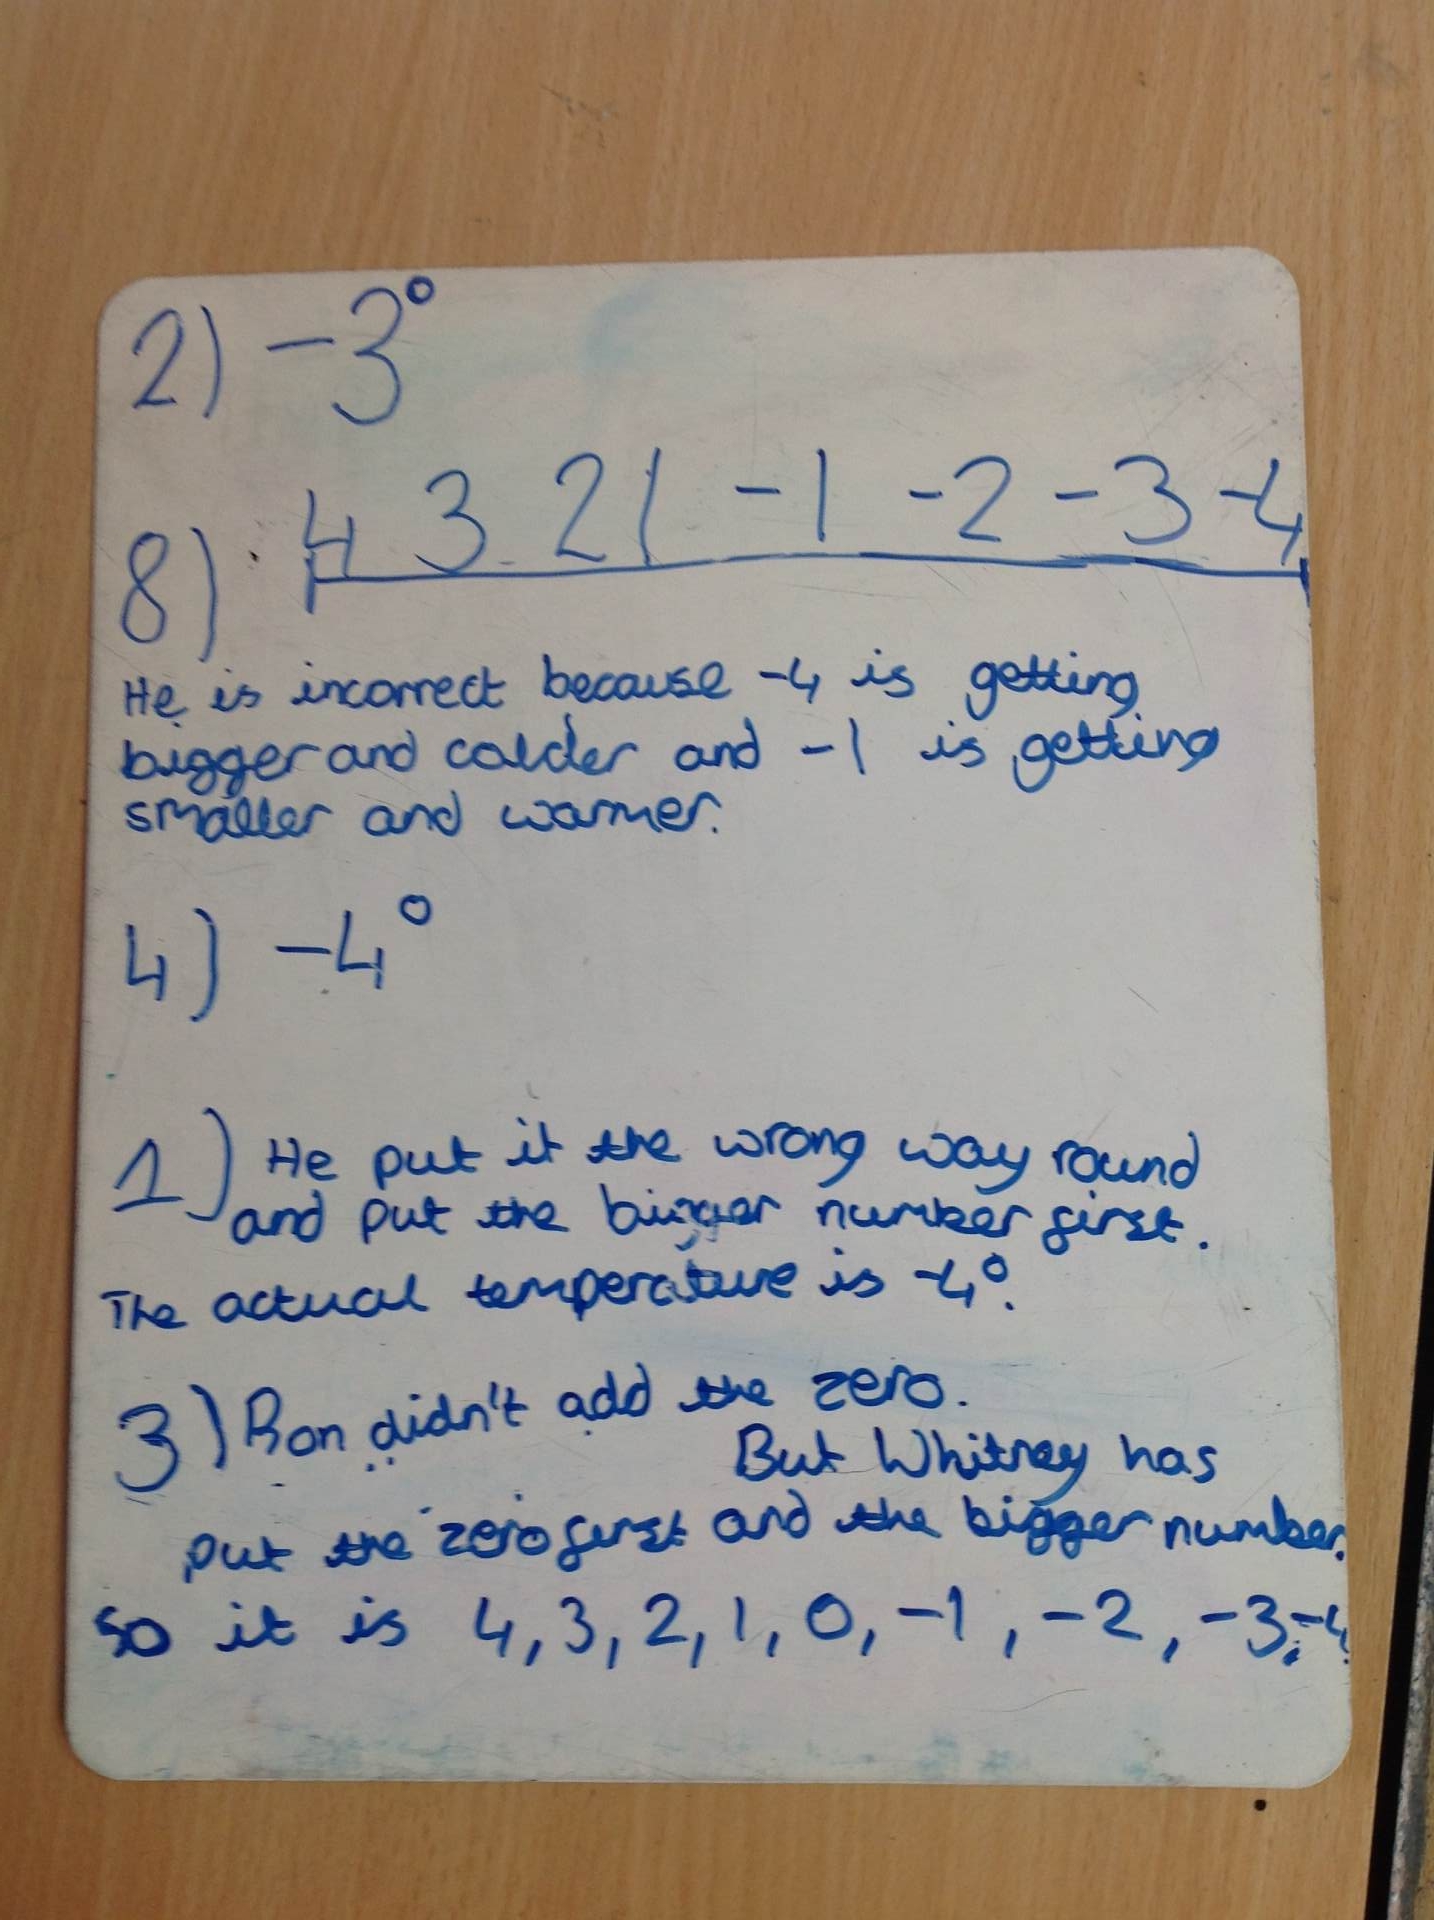 2) -3°
8) 4 3 2 1 -1 -2 -3 -4
He is incorrect because -4 is getting
bigger and colder and -1 is getting
smaller and warmer.
4) -4°
1) He put it the wrong way round
and put the bigger number first.
The actual temperature is -4°.
3) Ron didn't add the zero.
But Whitney has
put the zero first and the bigger number.
so it is 4, 3, 2, 1, 0, -1, -2, -3, -4.